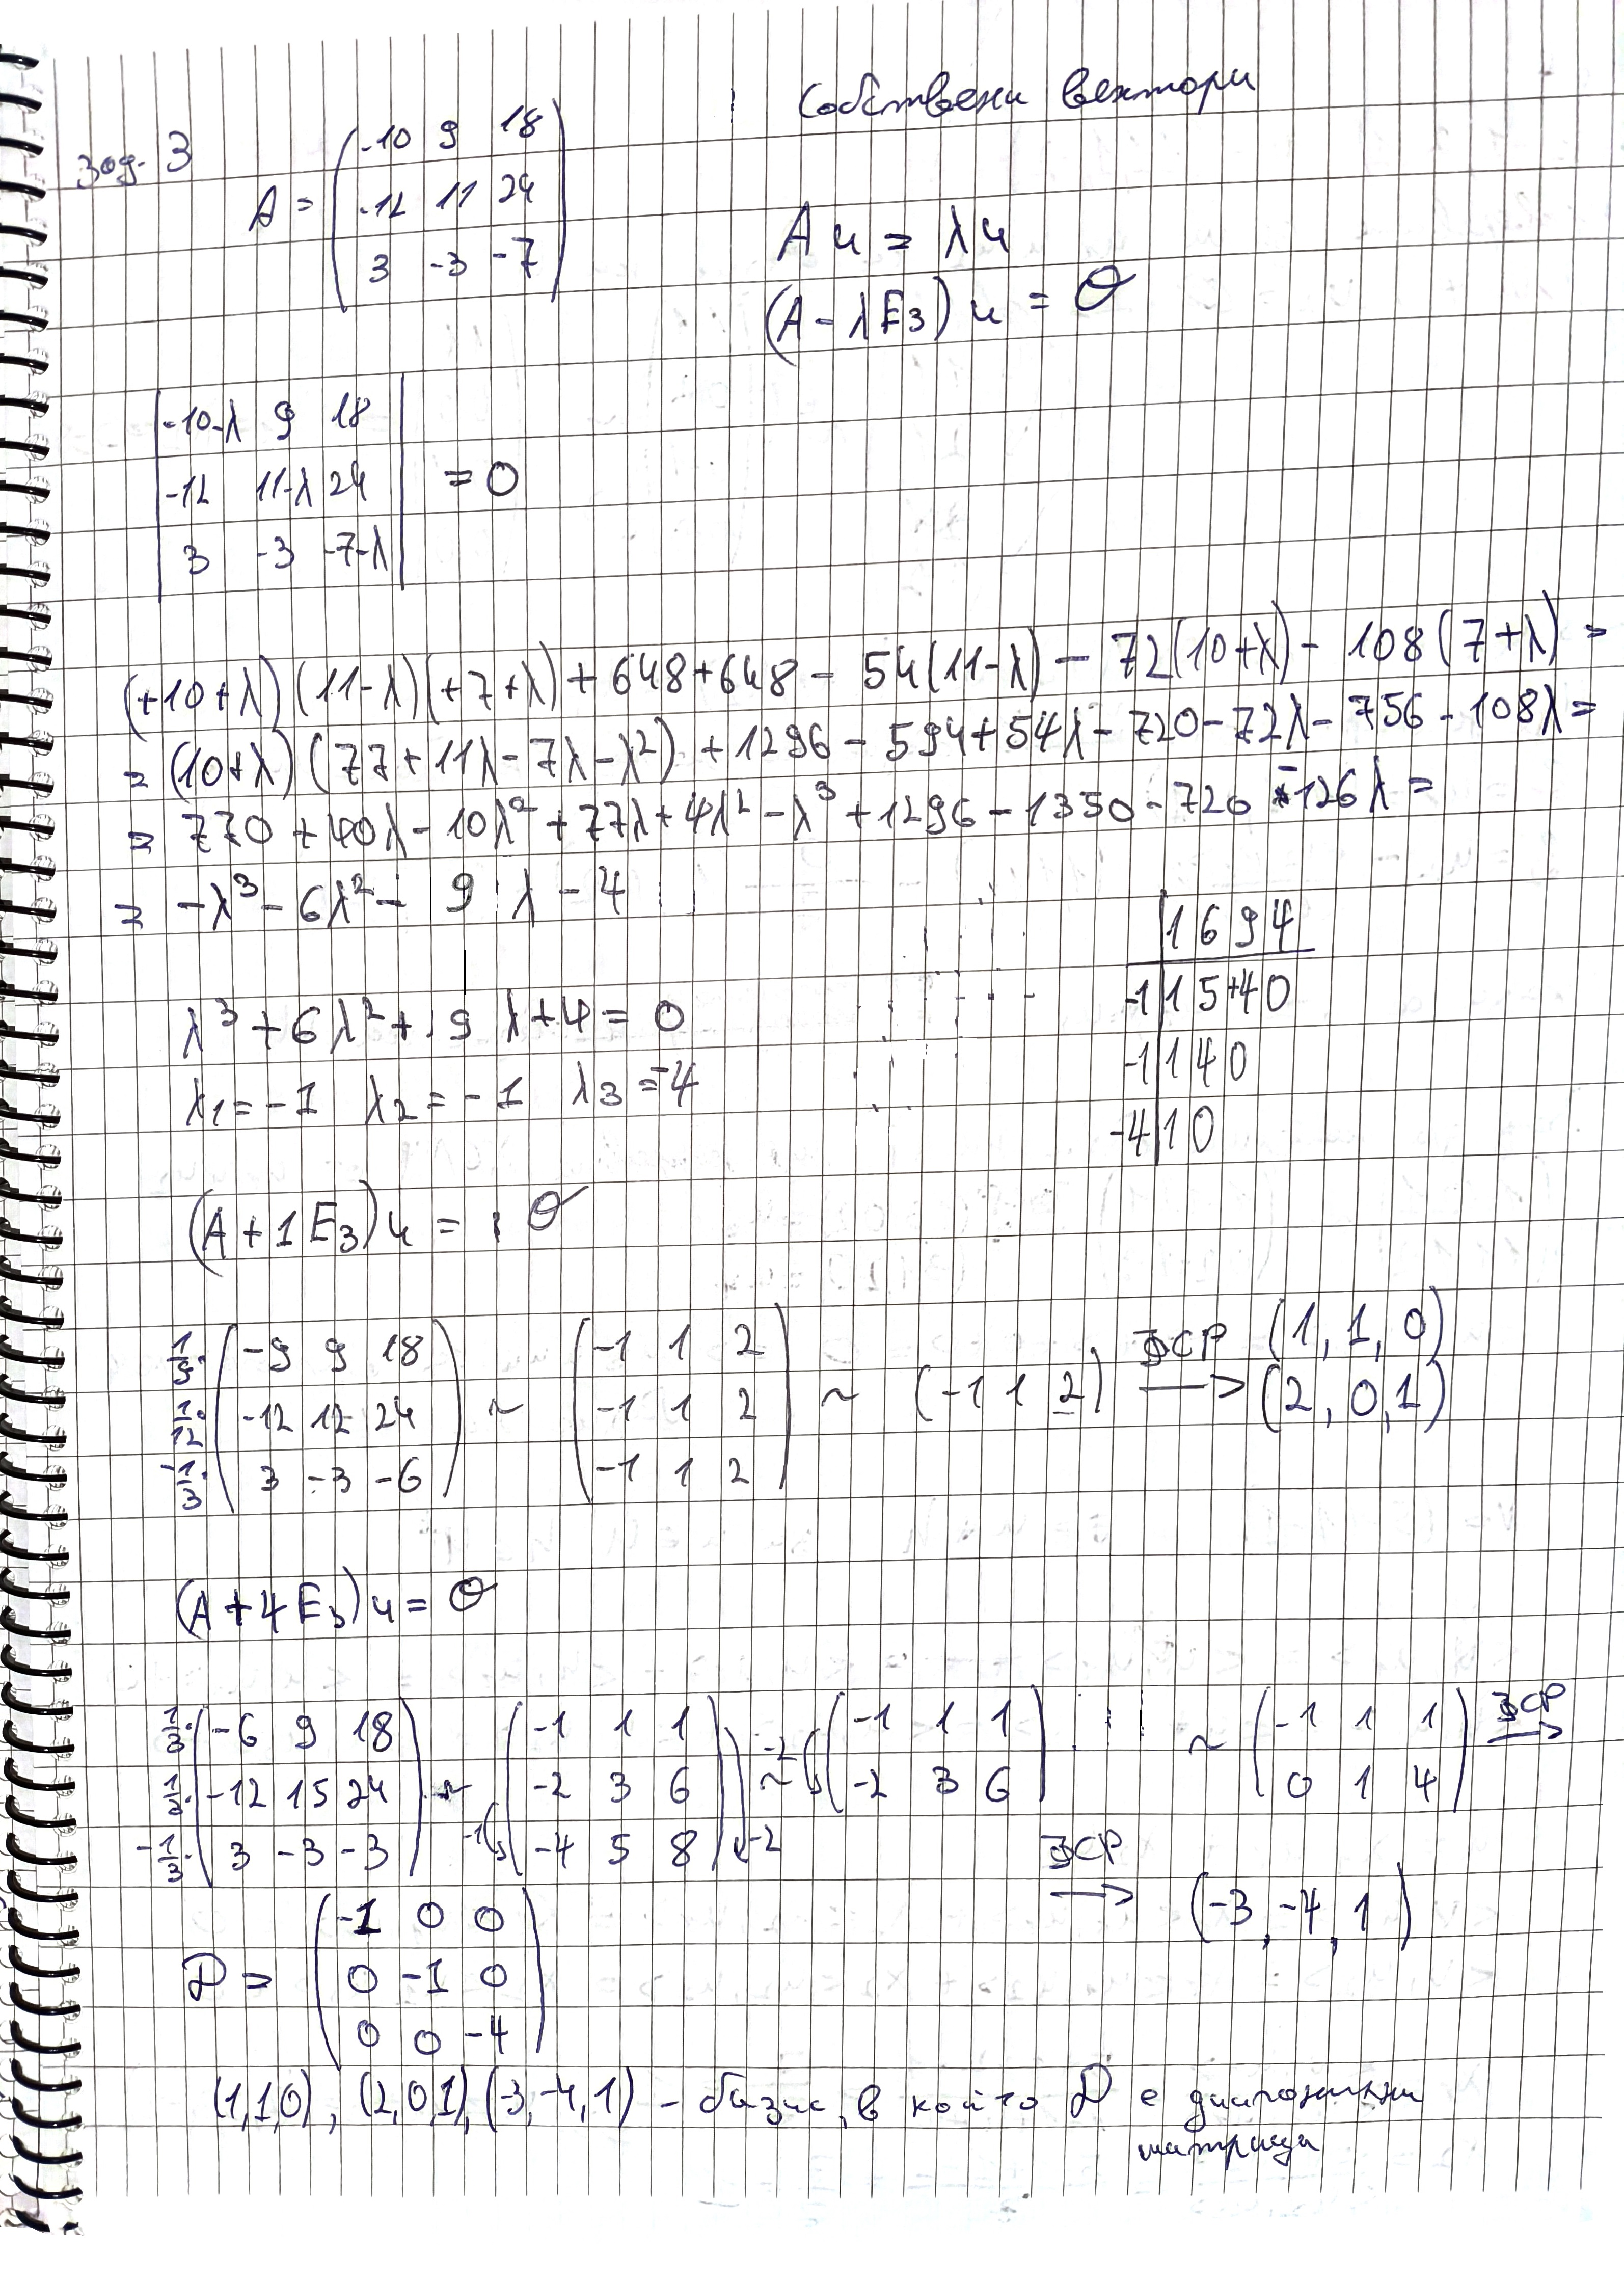 Собствени вектори
зад. 3
A = (-10 9 18
-12 11 24
3 -3 -7)
A u = λu
(A - λE₃) u = O
|-10-λ 9 18|
|-12 11-λ 24| = 0
|3 -3 -7-λ|
(+10+λ)(11-λ)(+7+λ) + 648+648 - 54(11-λ) - 72(10+λ) - 108(7+λ) =
= (10+λ)(77+11λ-7λ-λ²) + 1296 - 594+54λ - 720-72λ - 756 - 108λ =
= 770 + 40λ - 10λ² + 77λ + 4λ² - λ³ + 1296 - 1350 - 720 - 126λ =
= -λ³ - 6λ² - 9 λ - 4
| 1 6 9 4
-1 | 1 5 +4 0
-1 | 1 4 0
-4 | 1 0
λ³ + 6λ² + 9 λ + 4 = 0
λ₁ = -1 λ₂ = -1 λ₃ = -4
(A + 1E₃) u = O
1/9· (-9 9 18) ~ (-1 1 2) ~ (-1 1 2) ФСР → (1, 1, 0)
1/12· (-12 12 24) (-1 1 2) (2, 0, 1)
-1/3· (3 -3 -6) (-1 1 2)
(A + 4E₃) u = O
1/3· (-6 9 18) ~ (-1 1 1) -2 ~ (-1 1 1) ~ (-1 1 1) ФСР →
1/3· (-12 15 24) (-2 3 6) (-2 3 6) (0 1 4)
-1/3· (3 -3 -3) -1 (-4 5 8) -2
ФСР → (-3, -4, 1)
D = (-1 0 0
0 -1 0
0 0 -4)
(1,1,0), (2,0,1) (-3,-4,1) - базис, в който D е диагонална
матрица